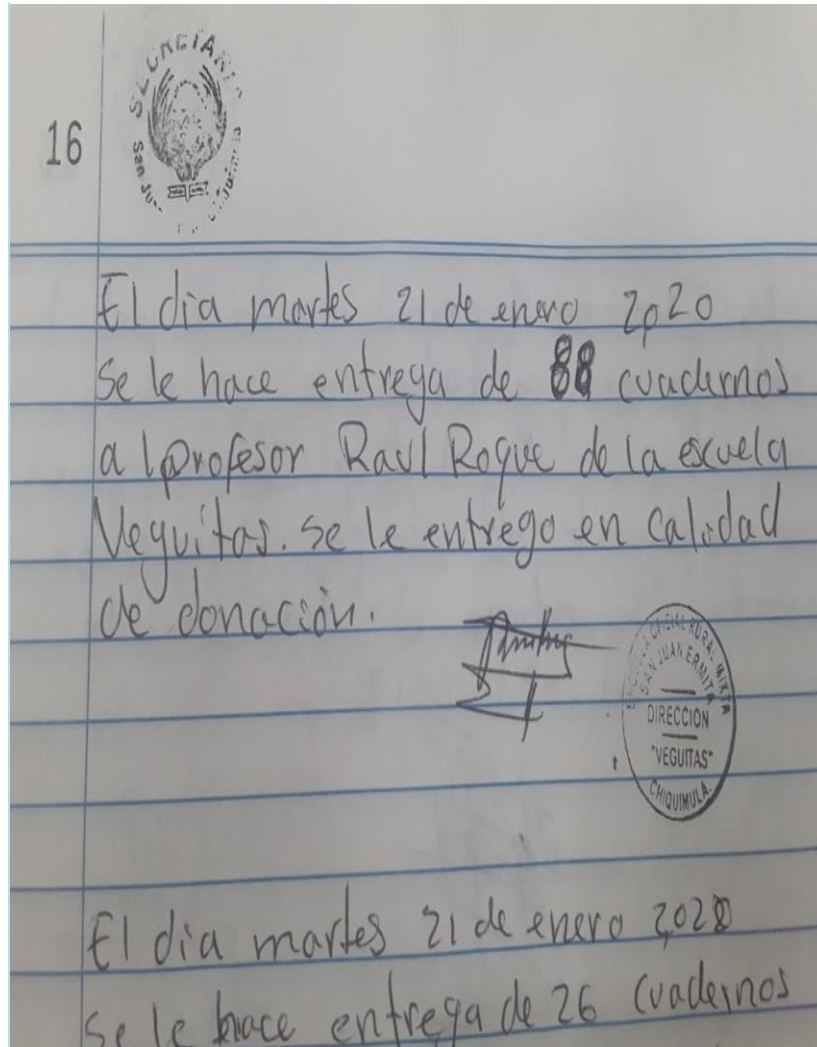 16
SECRETARI
San Ju
El dia martes 21 de enero 2,020
Se le hace entrega de 88 cuadernos
al profesor Raul Roque de la escuela
Veguitas. se le entrego en calidad
de donación.
ESCUELA OFICIAL RURAL MIXTA
SAN JUAN ERMITA
DIRECCION
"VEGUITAS"
CHIQUIMULA.
El dia martes 21 de enero 2,020
Se le hace entrega de 26 cuadernos